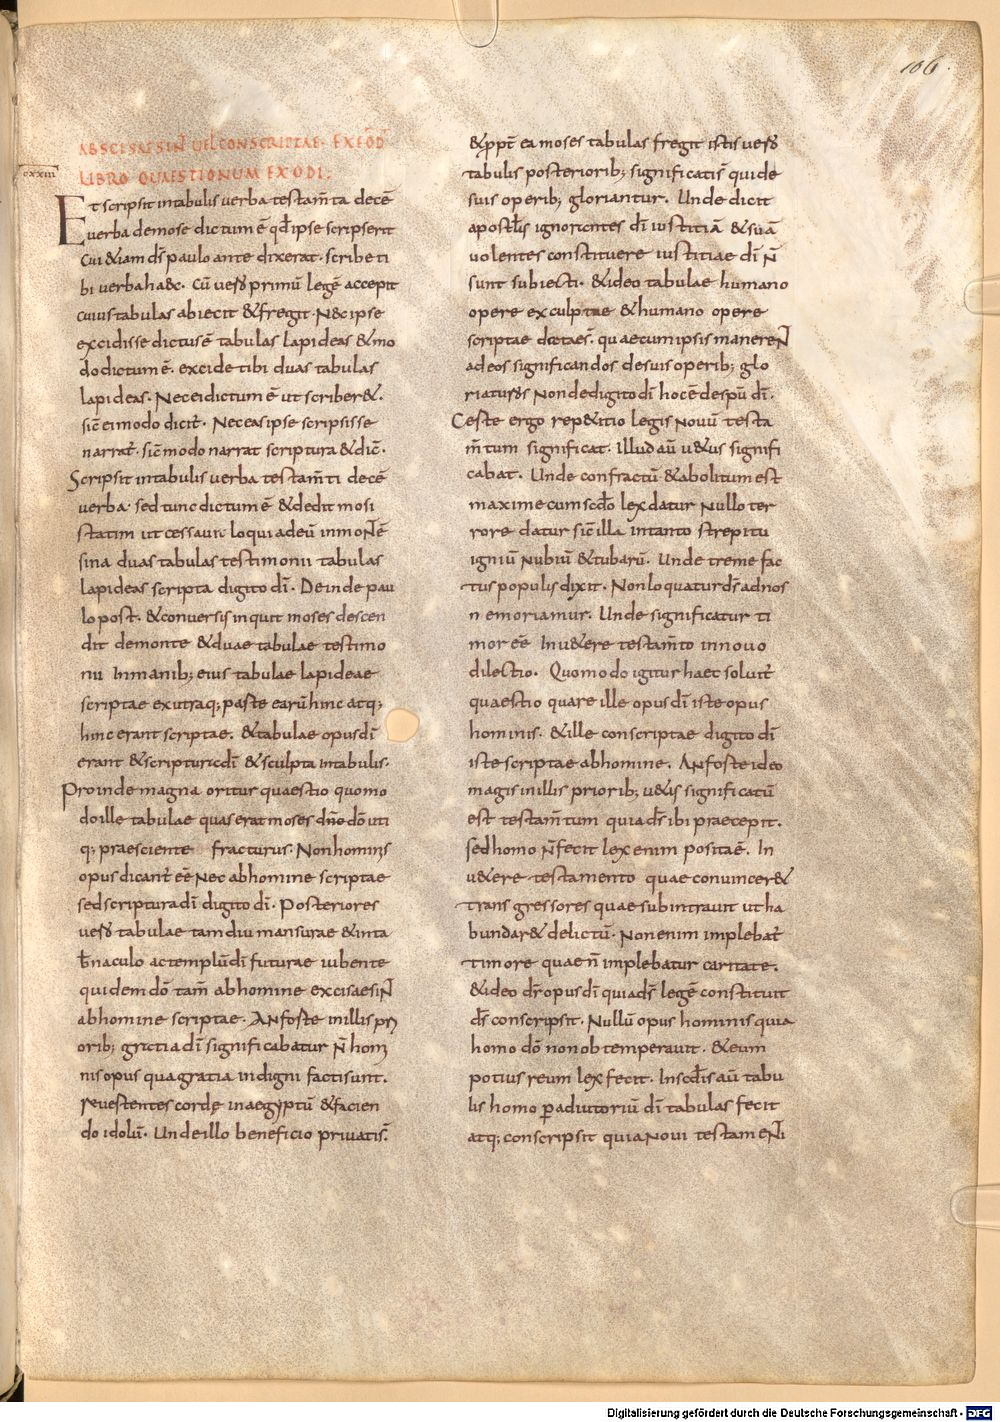 106.
ABSCISAE SIN̄ UEL CONSCRIPTAE. EX EOD̄
LIBRO QUAESTIONUM EXODI;
cxxiii
Et scripsit in tabulis uerba testam̄ta decē
uerba de mose dictum ē qđ ipse scripserit
cui &iam d̄s paulo ante dixerat. scribe ti
bi uerba haec. Cū uero primū legē accepit
cuius tabulas abiecit & fregit. Nec ipse
excidisse dictus ē tabulas lapideas & mo
do dictum ē. excide tibi duas tabulas
lapideas. Nec ei dictum ē ut scriber&.
sic̄ ei modo dicit̄. Nec eas ipse scripsisse
narrat̄. sic̄ modo narrat scriptura & dic̄.
Scripsit in tabulis uerba testam̄ti decē
uerba. sed tunc dictum ē & dedit mosi
statim ut cessauit loqui ad eū in monte
sina duas tabulas testimonii tabulas
lapideas scripta digito d̄i. Deinde pau
lo post. & conuersis inquit moses descen
dit de monte & duae tabulae testimo
nii In manib; eius tabulae lapideae
scriptae ex utraq; parte earū hinc atq;
hinc erant scriptae. & tabulae opus d̄i
erant & scriptura d̄i & sculpta in tabulis.
Proinde magna oritur quaestio quomo
do ille tabulae quas erat moses d̄no d̄o uti
q; praesciente fracturus. Non hominis
opus dicant̄ eē Nec ab homine scriptae
sed scriptura d̄i digito d̄i. Posteriores
uero tabulae tam diu mansurae & in ta
b̄naculo ac templū d̄i futurae iubente
quidem d̄o tam̄ ab homine excisae sint
ab homine scriptae. An forte in illis pri
orib; gratia d̄i significabatur n̄ homi
nis opus qua gratia indigni facti sunt.
reuertentes corde in aegyptū & facien
do idolū. Unde illo beneficio priuati s̄.
& ppt̄ ea moses tabulas fregit istis uero
tabulis posteriorib; significatis qui de
suis operib; gloriantur. Unde dicit
apostl̄s ignorantes d̄i iustitiā & suā
uolentes constituere iustitiae d̄i n̄
sunt subiecti. & ideo tabulae humano
opere exculptae & humano opere
scriptae datae s̄. quae cum ipsis manerent
ad eos significandos de suis operib; glo
riaturos Non de digito d̄i hoc ē de sp̄u d̄i.
Certe ergo rep&itio legis Nouū testa
m̄tum significat. Illud aū u&us signifi
cabat. Unde confractū & abolitum est
maxime cum scd̄o lex datur Nullo ter
rore datur sic̄ illa in tanto strepitu
igniū Nubiū & tubarū. Unde treme fac
tus populis dixit. Non loquatur d̄s ad nos
ne moriamur. Unde significatur ti
mor eē In u&ere testam̄to in nouo
dilectio. Quomodo igitur haec soluit̄
quaestio quare ille opus d̄i iste opus
hominis. & ille conscriptae digito d̄i
iste scriptae ab homine. An forte ideo
magis in illis priorib; u&us significatū
est testam̄tum quia d̄s ibi praecepit.
sed homo n̄ fecit lex enim posita ē. In
u&ere testamento quae conuincer&
transgressores quae subintrauit ut ha
bundar& delictū. Non enim implebat̄
timore quae n̄ implebatur caritate.
& ideo dr̄ opus d̄i quia d̄s legē constituit
d̄s conscripsit. Nullū opus hominis quia
homo d̄o non obtemperauit. & eum
potius reum lex fecit. In scd̄is aū tabu
lis homo p adiutoriū d̄i tabulas fecit
atq; conscripsit quia Noui testamenti
Digitalisierung gefördert durch die Deutsche Forschungsgemeinschaft - DFG